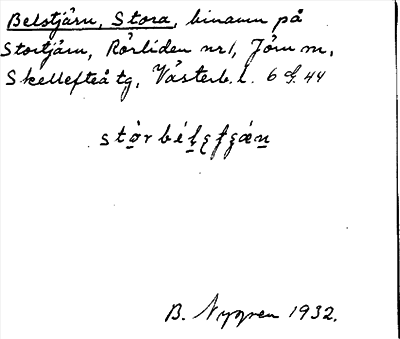 Belstjärn, Stora, binamn på
Stortjärn, Rörliden nr 1, Jörn sn,
Skellefteå tg, Västerb. l. 6 G. 44
B. Nygren 1932.